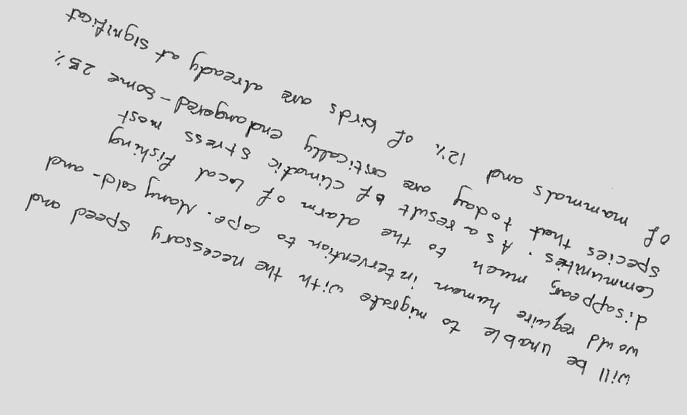 will be unable to migrate with the necessary speed and
would require human intervention to cope. Many cold- and
disappear, much to the alarm of local fishing
communities. As a result of climatic stress most
species that today are critically endangered - some 25%
of mammals and 12% of birds are already at significat